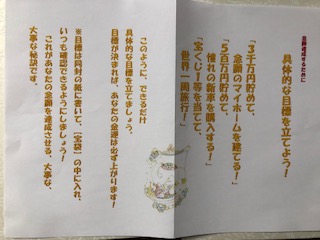 金願達成するために
具体的な目標を立てよう！
「３千万円貯めて、
念願のマイホームを建てる！」
「５百万円貯めて、
憧れの新車を購入する！」
「宝くじ１等を当てて、
世界一周旅行！」
このように、できるだけ
具体的な目標を立てましょう。
目標が決まれば、あなたの金運は必ず上がります！
※目標は同封の紙に書いて、【宝袋】の中に入れ、
いつも確認できるようにしましょう！
これがあなたの金願を達成させる、大事な、
大事な秘訣です。